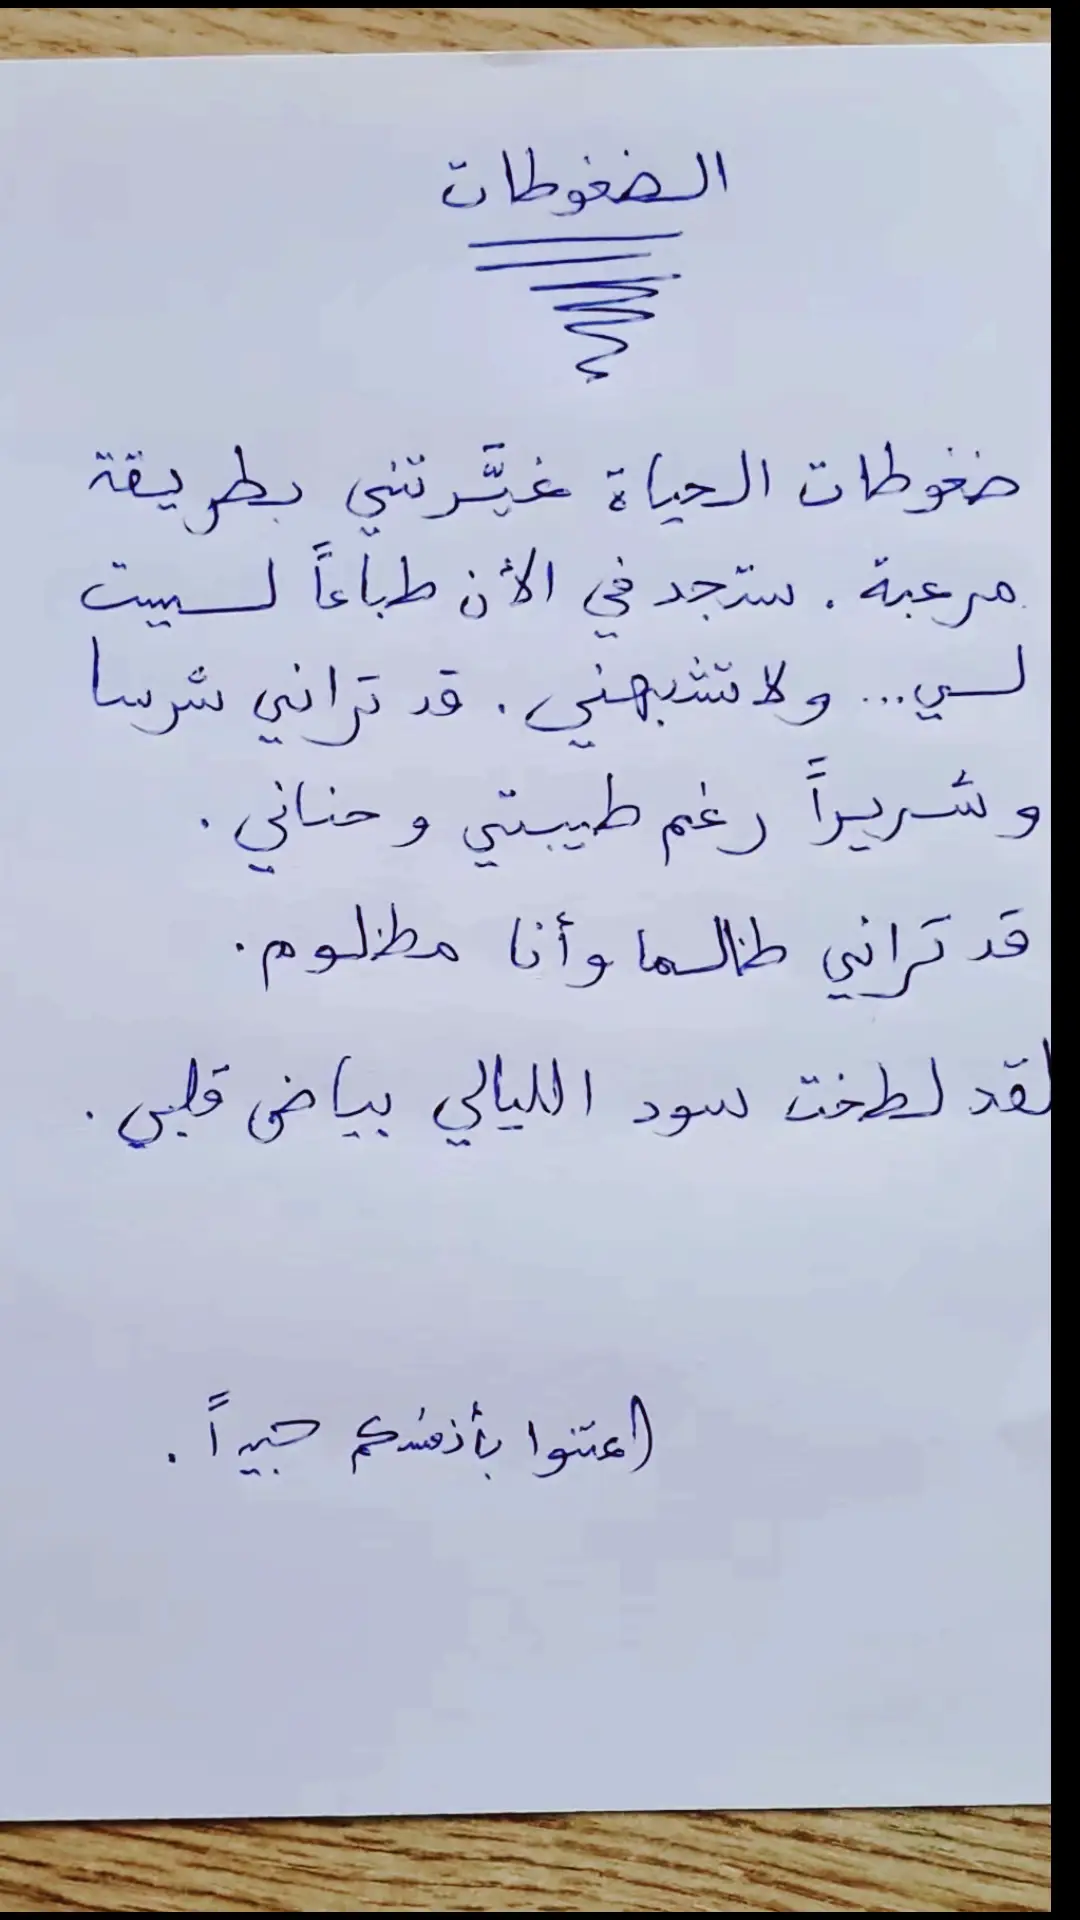 الضغوطات
ضغوطات الحياة غيَّرتني بطريقة
مرعبة . ستجد في الأن طباعاً ليست
لي... ولا تشبهني . قد تراني شرسا
وشريراً رغم طيبتي وحناني .
قد تراني ظالما وأنا مظلوم .
لقد لطخت سود الليالي بياض قلبي .
اعتنوا بأنفسكم جيداً .